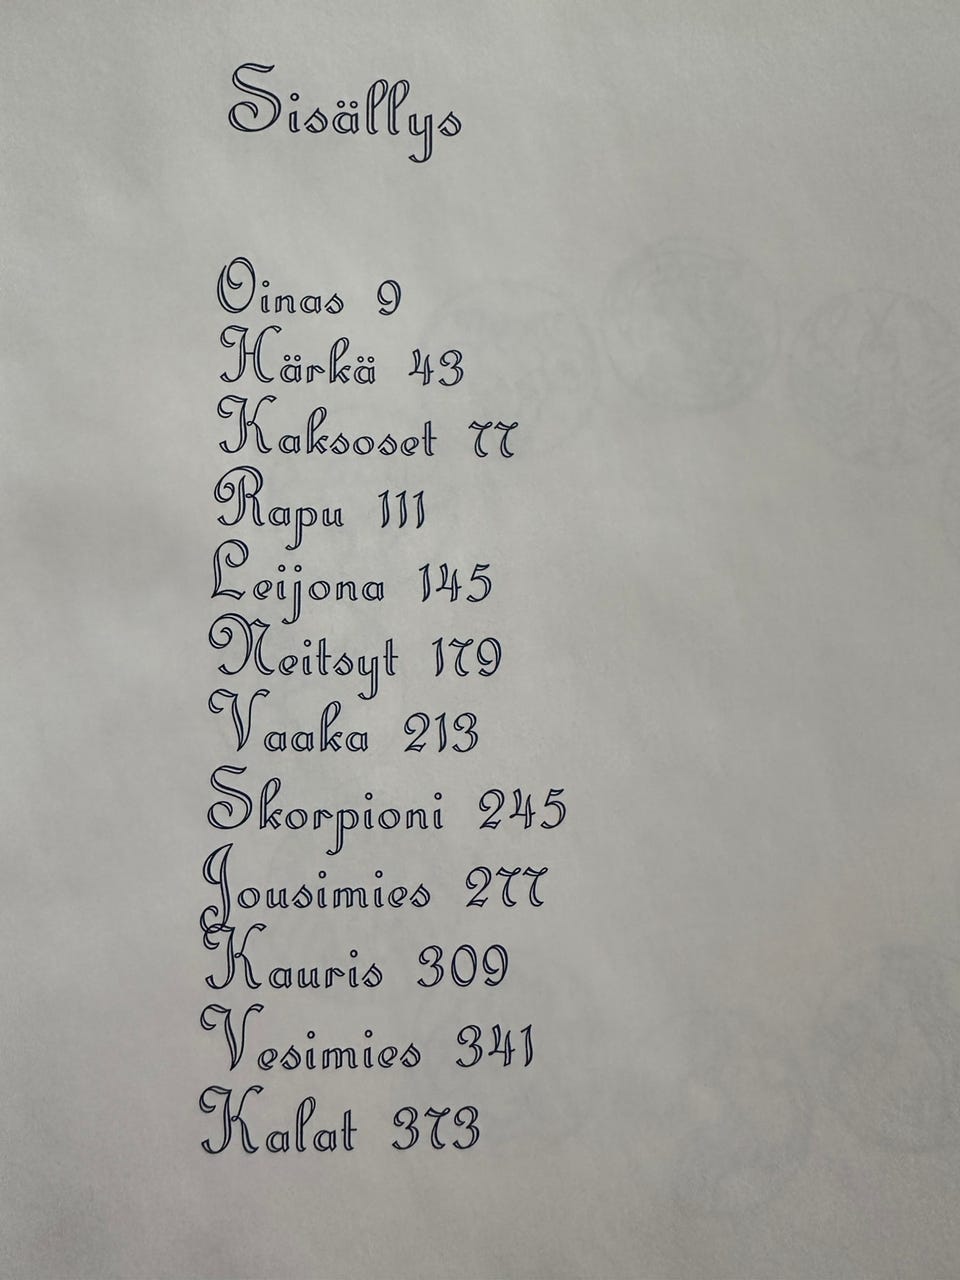 Sisällys
Oinas 9
Härkä 43
Kaksoset 77
Rapu 111
Leijona 145
Neitsyt 179
Vaaka 213
Skorpioni 245
Jousimies 277
Kauris 309
Vesimies 341
Kalat 373